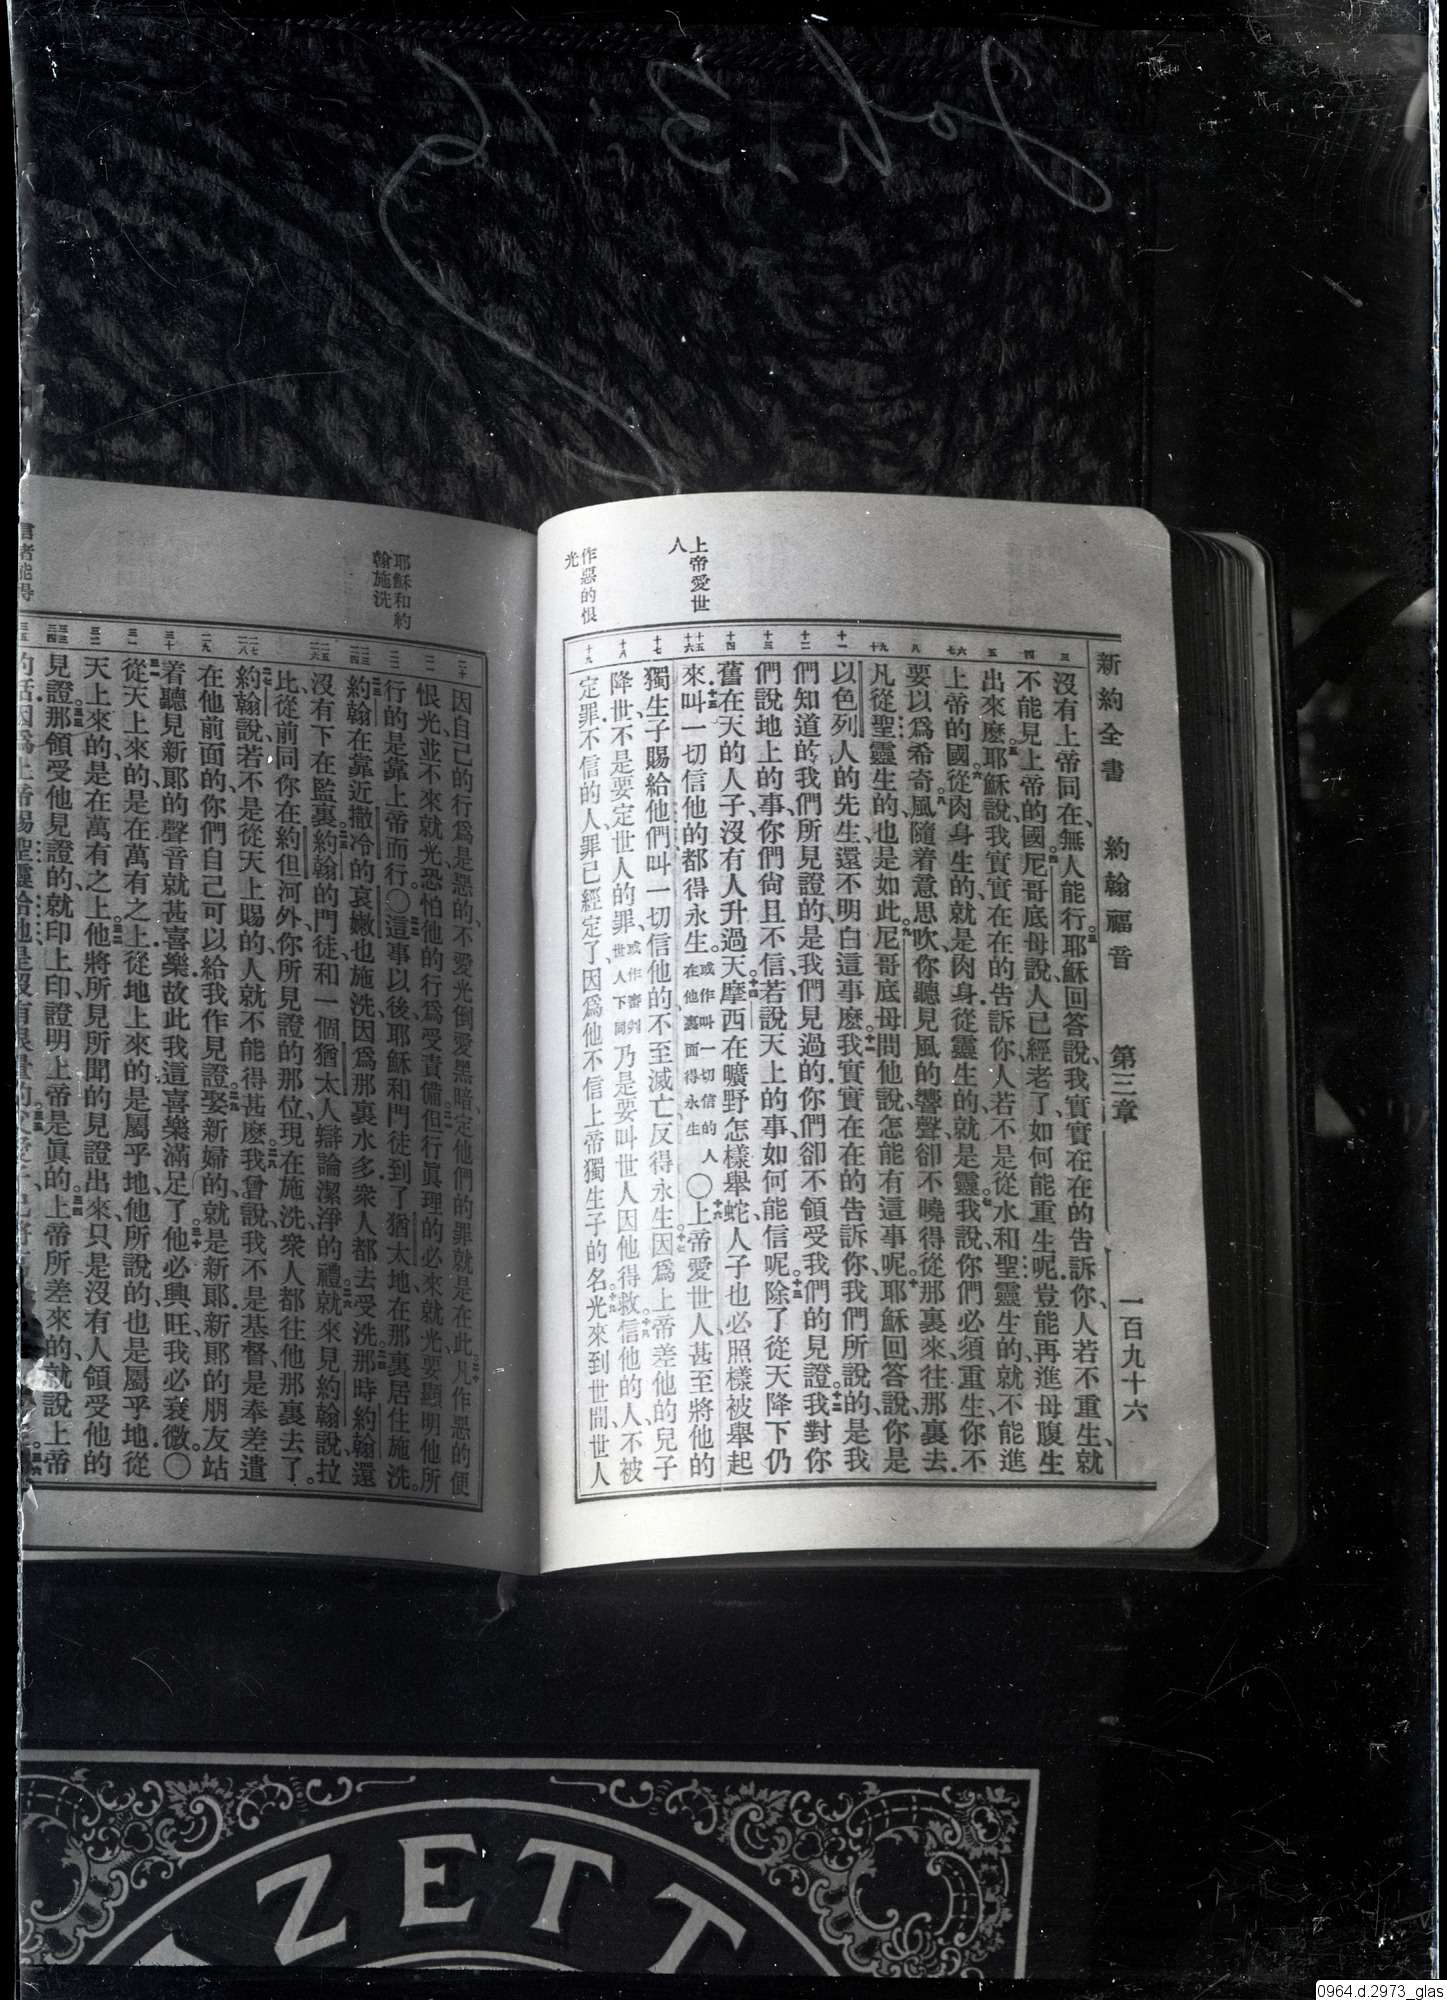 Joh. 3. 16
新約全書 約翰福音 第三章 一百九十六
三 四 五 六七 八 九十 十一 十二 十三 十四 十五十六 十七 十八 十九
上帝愛世人
作惡的恨光
沒有上帝同在、無人能行。三耶穌回答說、我實實在在的告訴你、人若不重生、就
不能見上帝的國。四尼哥底母說、人已經老了、如何能重生呢、豈能再進母腹生
出來麼。五耶穌說、我實實在在的告訴你、人若不是從水和聖靈生的、就不能進
上帝的國。六從肉身生的、就是肉身、從靈生的、就是靈。七我說你們必須重生、你不
要以爲希奇。八風隨着意思吹、你聽見風的響聲、卻不曉得從那裏來、往那裏去、
凡從聖靈生的、也是如此。九尼哥底母問他說、怎能有這事呢。十耶穌回答說、你是
以色列人的先生、還不明白這事麼。十一我實實在在的告訴你、我們所說的、是我
們知道的、我們所見證的、是我們見過的、你們卻不領受我們的見證。十二我對你
們說地上的事、你們尙且不信、若說天上的事、如何能信呢。十三除了從天降下、仍
舊在天的人子、沒有人升過天。十四摩西在曠野怎樣舉蛇、人子也必照樣被舉起
來、十五叫一切信他的都得永生。或作叫一切信的人在他裏面得永生○十六上帝愛世人、甚至將他的
獨生子賜給他們、叫一切信他的、不至滅亡、反得永生。十七因爲上帝差他的兒子
降世、不是要定世人的罪、或作審判世人下同乃是要叫世人因他得救。十八信他的人、不被
定罪、不信的人、罪已經定了、因爲他不信上帝獨生子的名。十九光來到世間、世人
耶穌和約翰施洗
二十 二一 二二 二三二四 二五二六 二七二八 二九 三十 三一 三二 三三三四 三五
因自己的行爲是惡的、不愛光倒愛黑暗、定他們的罪就是在此。二十凡作惡的便
恨光、並不來就光、恐怕他的行爲受責備、二一但行眞理的必來就光、要顯明他所
行的是靠上帝而行。○二二這事以後、耶穌和門徒到了猶太地、在那裏居住施洗。
二三約翰在靠近撒冷的哀嫩也施洗、因爲那裏水多、衆人都去受洗、二四那時約翰還
沒有下在監裏。二五約翰的門徒、和一個猶太人辯論潔淨的禮、二六就來見約翰說、拉
比、從前同你在約但河外、你所見證的那位、現在施洗、衆人都往他那裏去了。
二七約翰說、若不是從天上賜的、人就不能得甚麼。二八我曾說、我不是基督、是奉差遣
在他前面的、你們自己可以給我作見證。二九娶新婦的、就是新郎、新郎的朋友站
着、聽見新郎的聲音就甚喜樂、故此我這喜樂滿足了。三十他必興旺、我必衰微。○
三一從天上來的、是在萬有之上、從地上來的、是屬乎地、他所說的也是屬乎地、從
天上來的、是在萬有之上。三二他將所見所聞的見證出來、只是沒有人領受他的
見證。三三那領受他見證的、就印上印、證明上帝是眞的。三四上帝所差來的、就說上帝
ZETT
0964.d.2973_glas